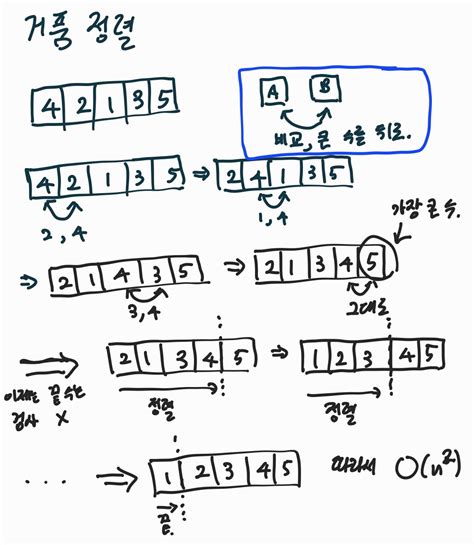 거품 정렬
4 2 1 3 5
A B
비교, 큰 수를 뒤로.
4 2 1 3 5 ⇒ 2 4 1 3 5
2, 4 1, 4
가장 큰 수.
⇒ 2 1 4 3 5 ⇒ 2 1 3 4 5
3, 4 그대로
⇒ 2 1 3 4 5 ⇒ 1 2 3 4 5
이제는 끝 수는
검사 X
정렬 정렬
... ⇒ 1 2 3 4 5 따라서 O(n²)
끝.